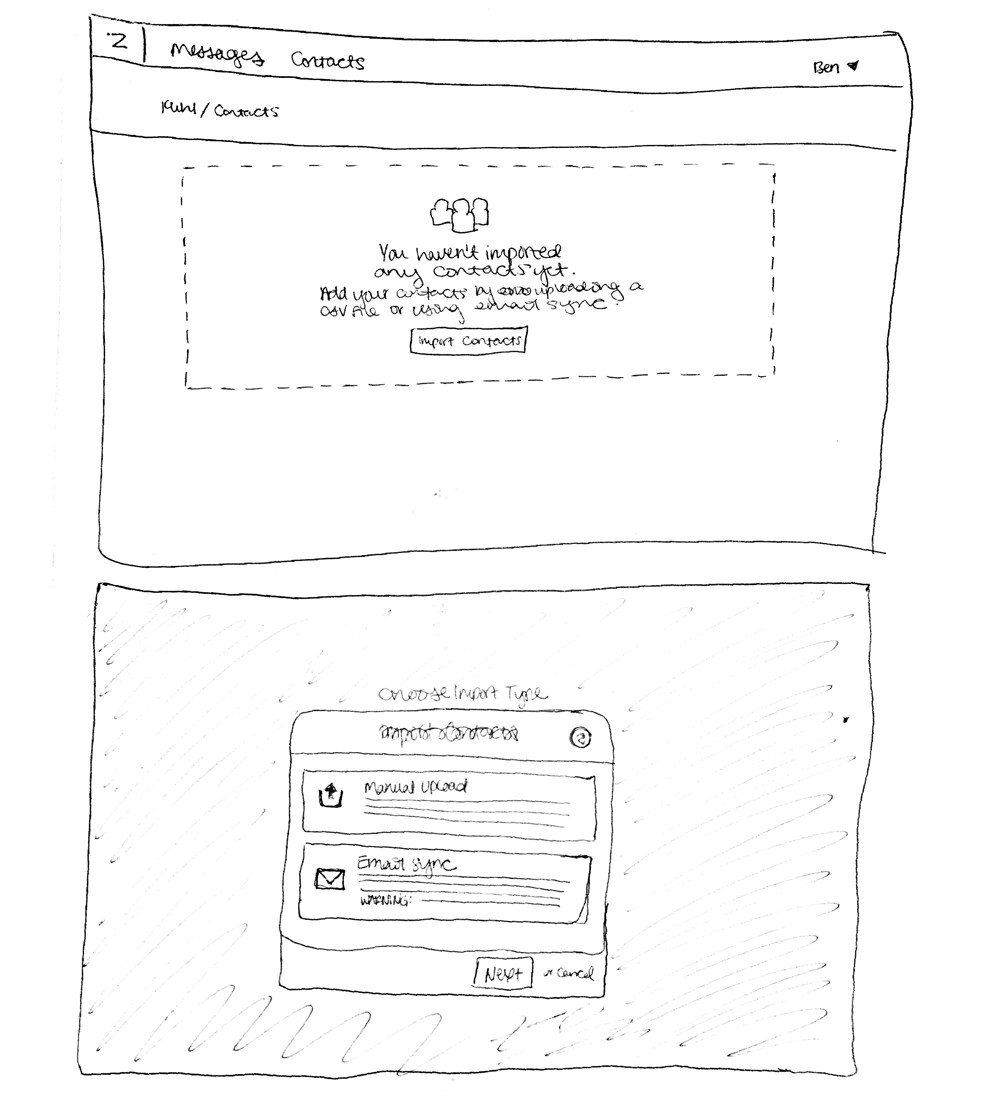 Z
Messages Contacts
Ben
/ Contacts
You haven't imported
any contacts yet.
Add your contacts by uploading a
CSV file or using email sync.
Import Contacts
Choose Import Type
Import Contacts
Manual Upload
Email Sync
WARNING:
Next or Cancel